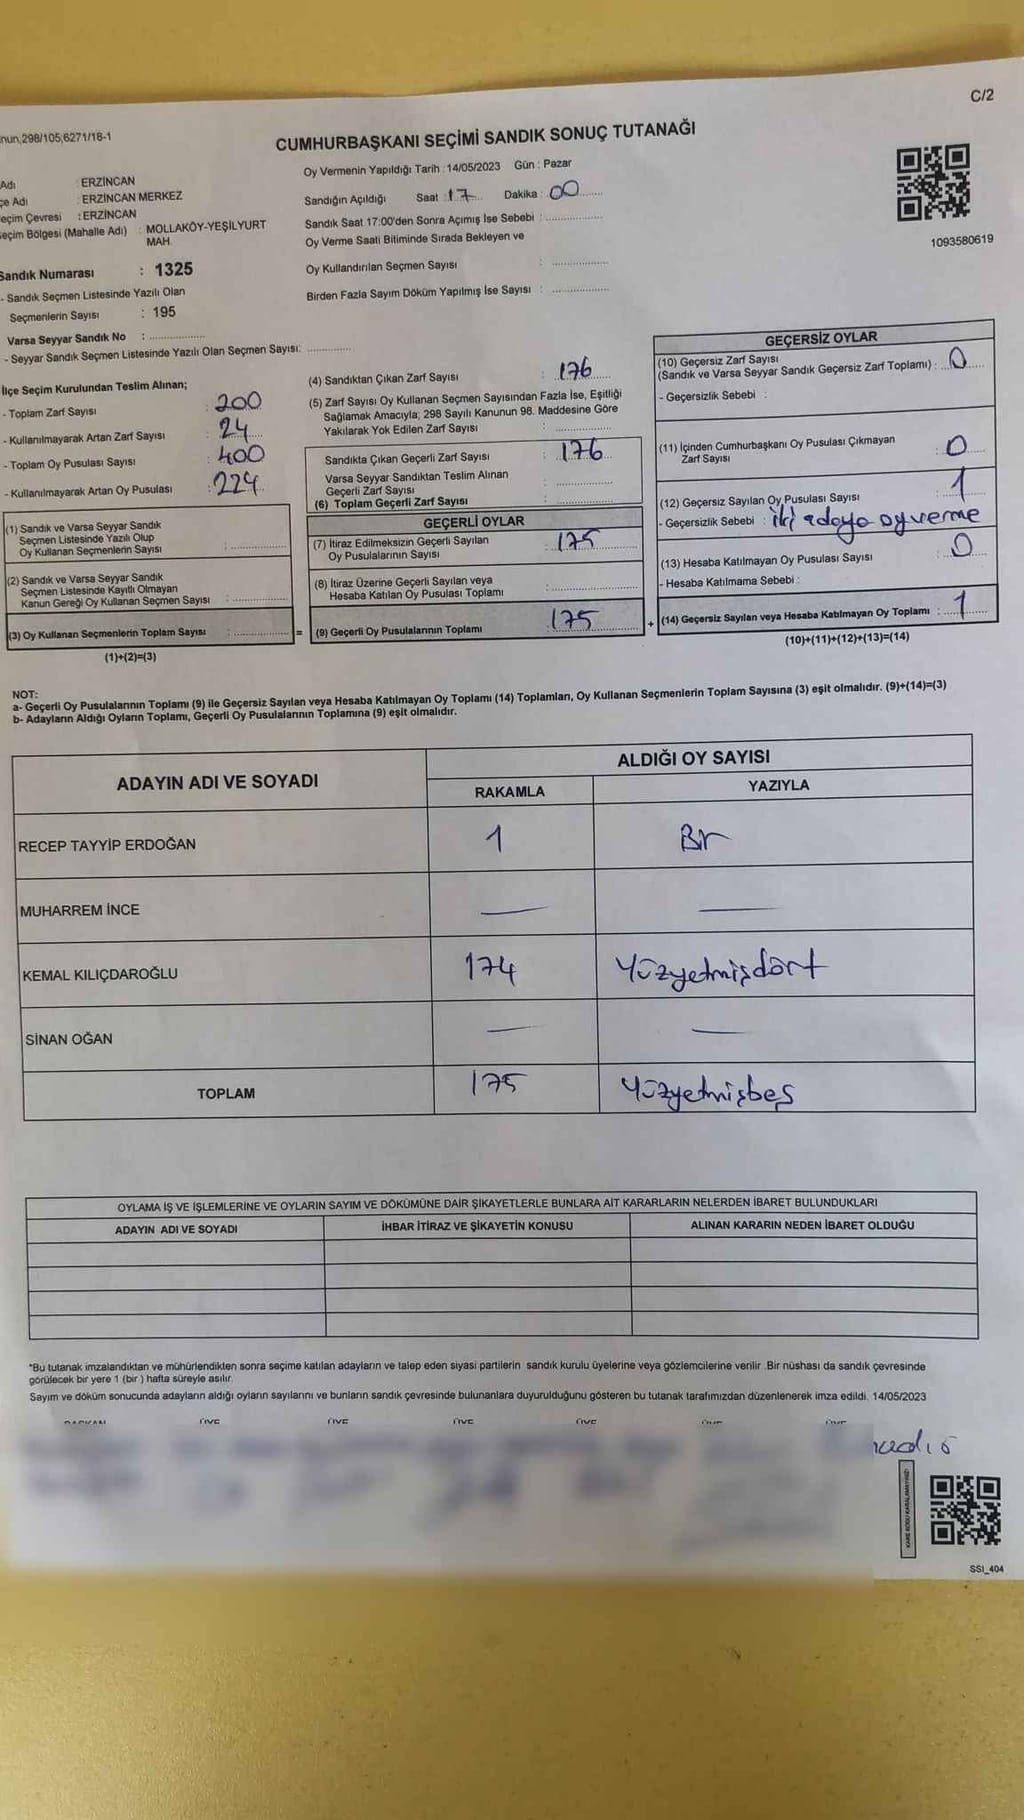 C/2
nun,298/105,6271/18-1
CUMHURBAŞKANI SEÇİMİ SANDIK SONUÇ TUTANAĞI
Adı : ERZİNCAN
çe Adı : ERZİNCAN MERKEZ
eçim Çevresi : ERZİNCAN
eçim Bölgesi (Mahalle Adı) : MOLLAKÖY-YEŞİLYURT
MAH.
Sandık Numarası : 1325
- Sandık Seçmen Listesinde Yazılı Olan
Seçmenlerin Sayısı : 195
Varsa Seyyar Sandık No :
- Seyyar Sandık Seçmen Listesinde Yazılı Olan Seçmen Sayısı:
Oy Vermenin Yapıldığı Tarih : 14/05/2023 Gün : Pazar
Sandığın Açıldığı Saat : 17 Dakika : 00
Sandık Saat 17:00'den Sonra Açımış İse Sebebi :
Oy Verme Saati Bitiminde Sırada Bekleyen ve
Oy Kullandırılan Seçmen Sayısı :
Birden Fazla Sayım Döküm Yapılmış İse Sayısı :
1093580619
İlçe Seçim Kurulundan Teslim Alınan;
- Toplam Zarf Sayısı : 200
- Kullanılmayarak Artan Zarf Sayısı : 24
- Toplam Oy Pusulası Sayısı : 400
- Kullanılmayarak Artan Oy Pusulası : 224
(1) Sandık ve Varsa Seyyar Sandık
Seçmen Listesinde Yazılı Olup
Oy Kullanan Seçmenlerin Sayısı :
(2) Sandık ve Varsa Seyyar Sandık
Seçmen Listesinde Kayıtlı Olmayan
Kanun Gereği Oy Kullanan Seçmen Sayısı :
(3) Oy Kullanan Seçmenlerin Toplam Sayısı :
(1)+(2)=(3)
=
(4) Sandıktan Çıkan Zarf Sayısı : 176
(5) Zarf Sayısı Oy Kullanan Seçmen Sayısından Fazla İse, Eşitliği
Sağlamak Amacıyla; 298 Sayılı Kanunun 98. Maddesine Göre
Yakılarak Yok Edilen Zarf Sayısı :
Sandıkta Çıkan Geçerli Zarf Sayısı : 176
Varsa Seyyar Sandıktan Teslim Alınan
Geçerli Zarf Sayısı :
(6) Toplam Geçerli Zarf Sayısı :
GEÇERLİ OYLAR
(7) İtiraz Edilmeksizin Geçerli Sayılan
Oy Pusulalarının Sayısı : 175
(8) İtiraz Üzerine Geçerli Sayılan veya
Hesaba Katılan Oy Pusulası Toplamı :
(9) Geçerli Oy Pusulalarının Toplamı 175
+
GEÇERSİZ OYLAR
(10) Geçersiz Zarf Sayısı
(Sandık ve Varsa Seyyar Sandık Geçersiz Zarf Toplamı) : 0
- Geçersizlik Sebebi :
(11) İçinden Cumhurbaşkanı Oy Pusulası Çıkmayan
Zarf Sayısı : 0
(12) Geçersiz Sayılan Oy Pusulası Sayısı : 1
- Geçersizlik Sebebi : iki adaya oy verme
(13) Hesaba Katılmayan Oy Pusulası Sayısı : 0
- Hesaba Katılmama Sebebi :
(14) Geçersiz Sayılan veya Hesaba Katılmayan Oy Toplamı : 1
(10)+(11)+(12)+(13)=(14)
NOT:
a- Geçerli Oy Pusulalarının Toplamı (9) ile Geçersiz Sayılan veya Hesaba Katılmayan Oy Toplamı (14) Toplamları, Oy Kullanan Seçmenlerin Toplam Sayısına (3) eşit olmalıdır. (9)+(14)=(3)
b- Adayların Aldığı Oyların Toplamı, Geçerli Oy Pusulalarının Toplamına (9) eşit olmalıdır.
ADAYIN ADI VE SOYADI ALDIĞI OY SAYISI
RAKAMLA YAZIYLA
RECEP TAYYİP ERDOĞAN 1 Bir
MUHARREM İNCE — —
KEMAL KILIÇDAROĞLU 174 Yüzyetmişdört
SİNAN OĞAN — —
TOPLAM 175 Yüzyetmişbeş
OYLAMA İŞ VE İŞLEMLERİNE VE OYLARIN SAYIM VE DÖKÜMÜNE DAİR ŞİKAYETLERLE BUNLARA AİT KARARLARIN NELERDEN İBARET BULUNDUKLARI
ADAYIN ADI VE SOYADI İHBAR İTİRAZ VE ŞİKAYETİN KONUSU ALINAN KARARIN NEDEN İBARET OLDUĞU
*Bu tutanak imzalandıktan ve mühürlendikten sonra seçime katılan adayların ve talep eden siyasi partilerin sandık kurulu üyelerine veya gözlemcilerine verilir .Bir nüshası da sandık çevresinde
görülecek bir yere 1 (bir ) hafta süreyle asılır.
Sayım ve döküm sonucunda adayların aldığı oyların sayılarını ve bunların sandık çevresinde bulunanlara duyurulduğunu gösteren bu tutanak tarafımızdan düzenlenerek imza edildi. 14/05/2023
BAŞKAN ÜYE ÜYE ÜYE ÜYE ÜYE ÜYE
KARE KODU KARALAMAYINIZ!
SSI_404